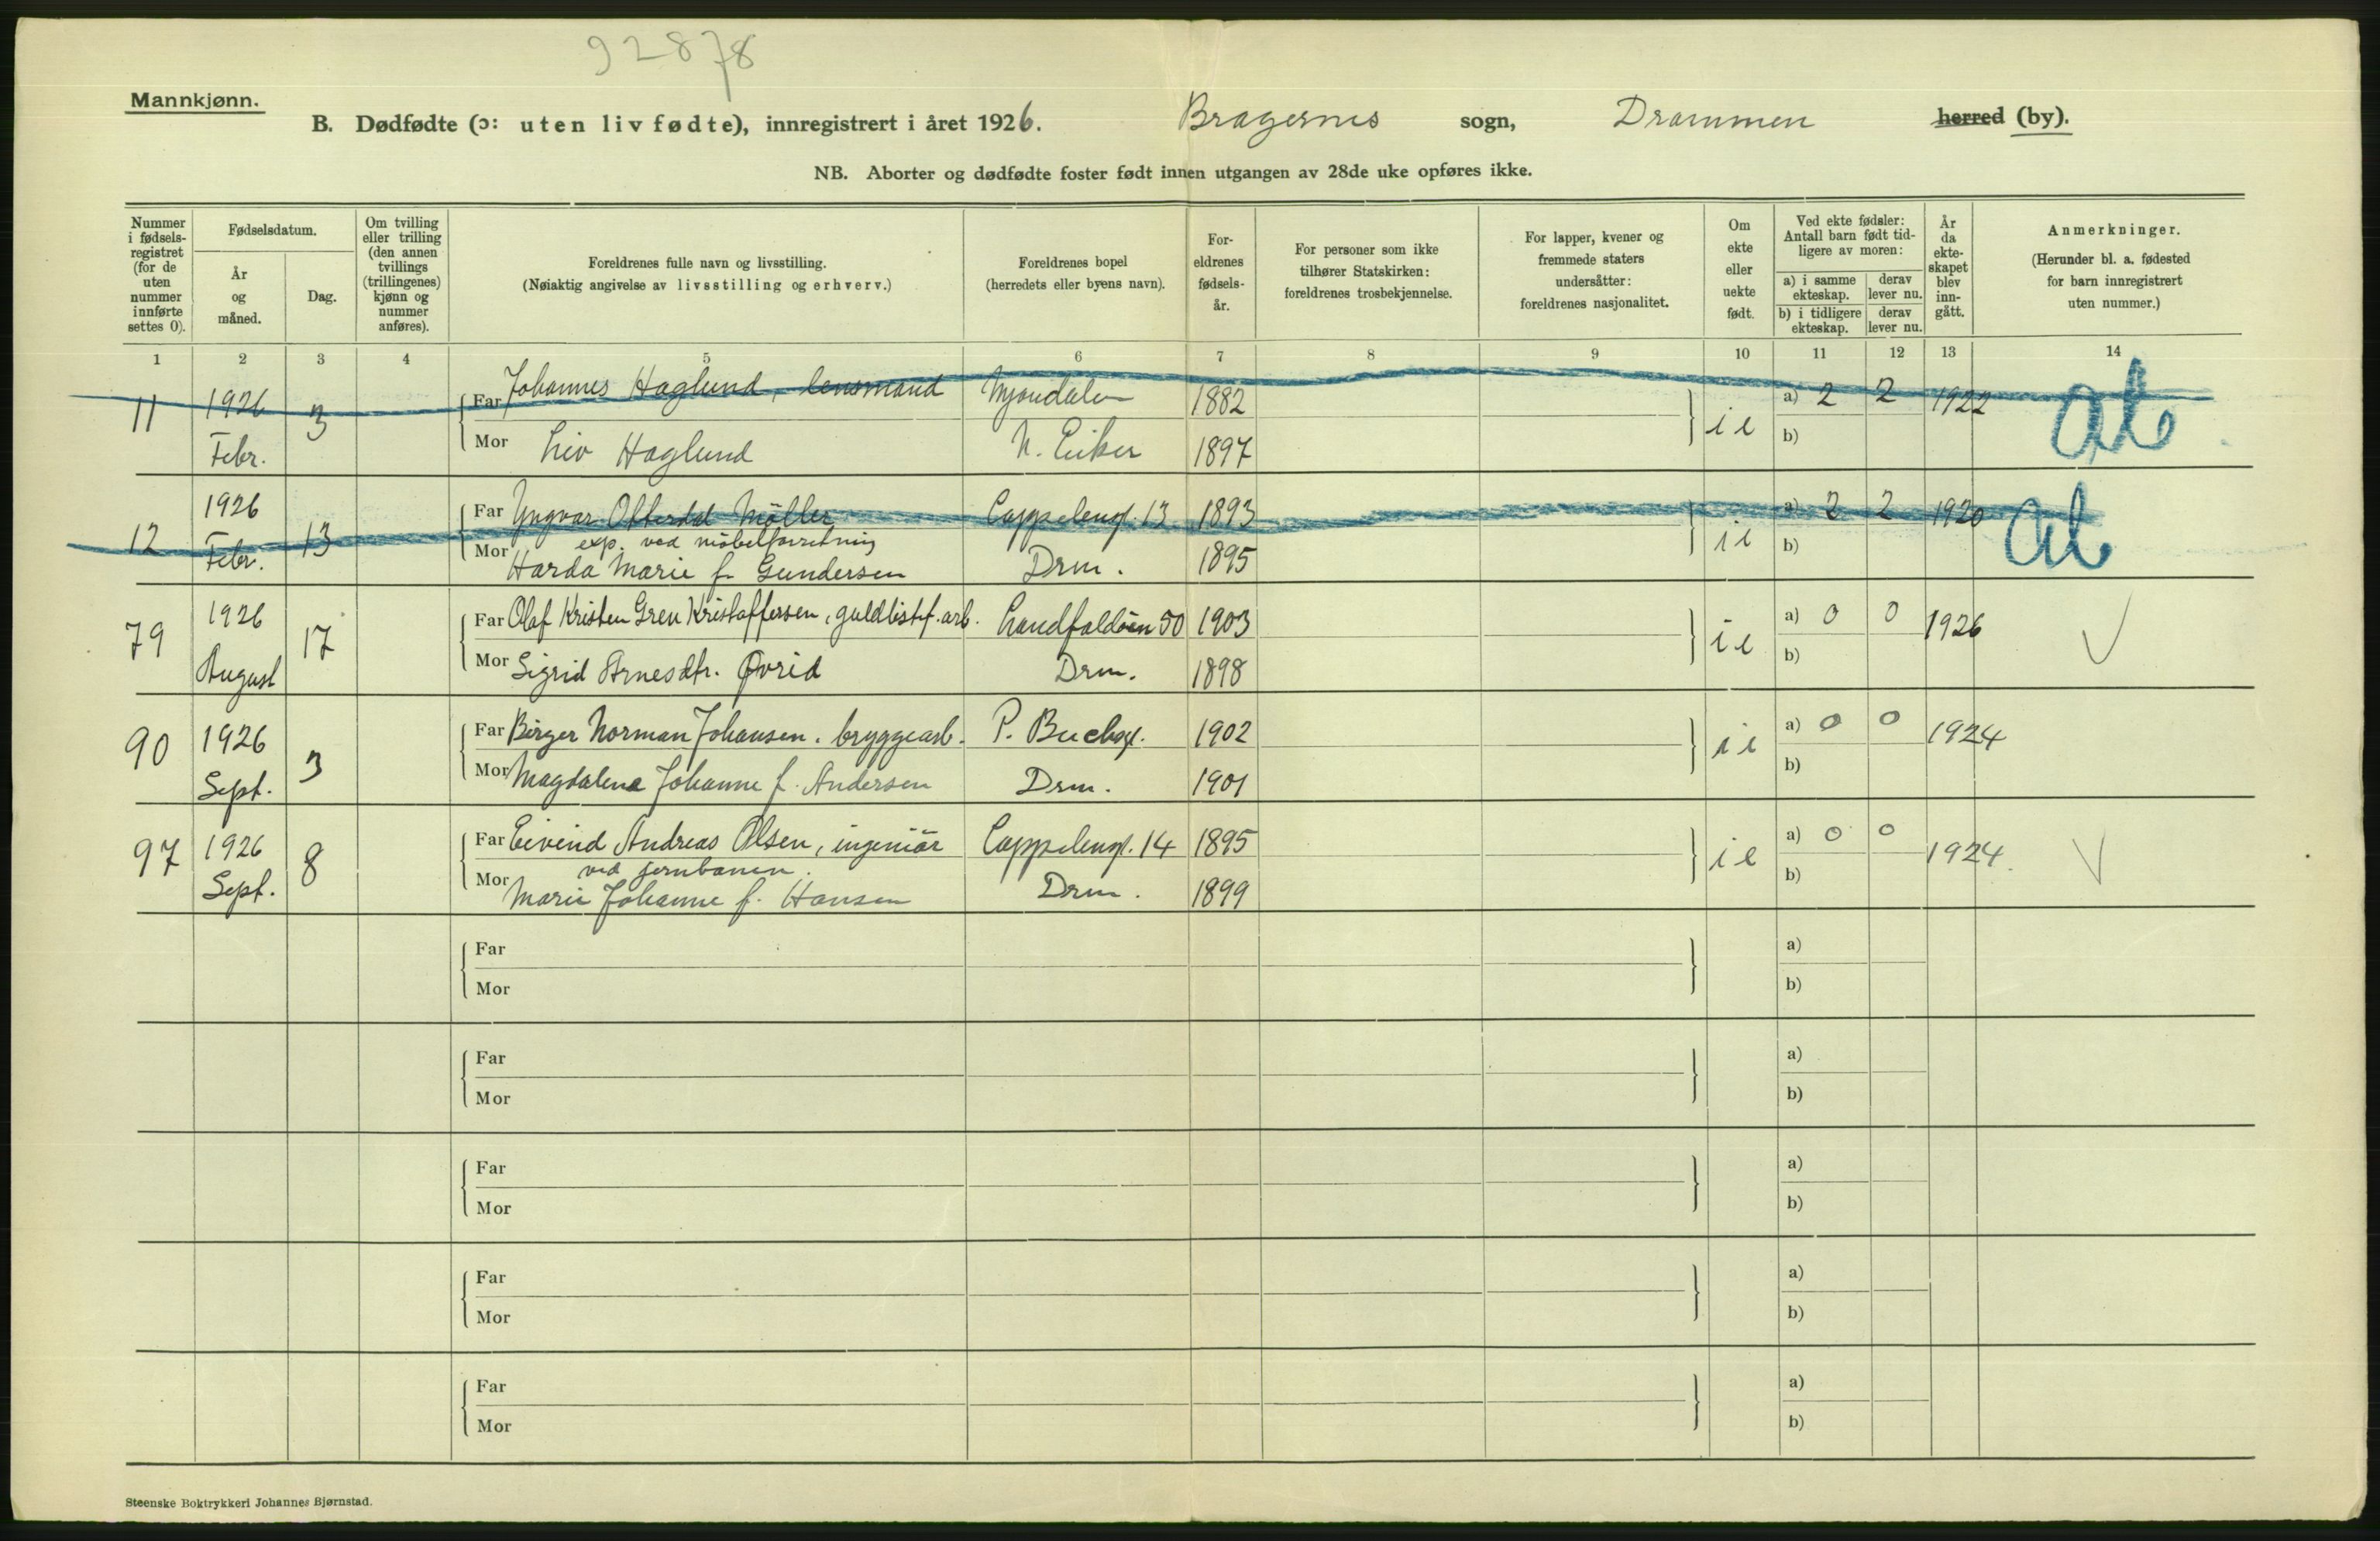 92878
Mannkjønn.
B. Dødfødte (ɔ: uten liv fødte), innregistrert i året 1926. Bragernes sogn, Drammen herred (by).
NB. Aborter og dødfødte foster født innen utgangen av 28de uke opføres ikke.
Nummer i fødsels-registret (for de uten nummer innførte settes 0).
Fødselsdatum.
År og måned.
Dag.
Om tvilling eller trilling (den annen tvillings (trillingenes) kjønn og nummer anføres).
Foreldrenes fulle navn og livsstilling.
(Nøiaktig angivelse av livsstilling og erhverv.)
Foreldrenes bopel
(herredets eller byens navn).
For-eldrenes fødsels-år.
For personer som ikke tilhører Statskirken: foreldrenes trosbekjennelse.
For lapper, kvener og fremmede staters undersåtter: foreldrenes nasjonalitet.
Om ekte eller uekte født.
Ved ekte fødsler: Antall barn født tid-ligere av moren:
a) i samme ekteskap. derav lever nu.
b) i tidligere ekteskap. derav lever nu.
År da ekte-skapet blev inn-gått.
Anmerkninger.
(Herunder bl. a. fødested for barn innregistrert uten nummer.)
1 2 3 4 5 6 7 8 9 10 11 12 13 14
11 1926 Febr. 3
Far Johannes Haglund, lensmand Mjøndalen 1882 a) 2 2 1922 ab
Mor Liv Haglund N. Eiker 1897 i e b)
12 1926 Febr. 13
Far Yngvar Offerdal Møller Cappelensg. 13 1893 a) 2 2 1920 ab
exp. ved møbelforretning
Mor Harda Marie f. Gundersen Drm. 1895 i e b)
79 1926 August 17
Far Olaf Kristen Gren Kristoffersen, guldlistf. arb. Landfaldøen 50 1903 a) 0 0 1926
Mor Sigrid Arnesdtr. Øvrid Drm. 1898 i e b)
90 1926 Sept. 3
Far Birger Norman Johansen, bryggearb. P. Buchsg. 1902 a) 0 0 1924
Mor Magdalena Johanne f. Andersen Drm. 1901 i e b)
97 1926 Sept. 8
Far Eivind Andreas Olsen, ingeniör Cappelensg. 14 1895 a) 0 0 1924
ved jernbanen.
Mor Marie Johanne f. Hansen Drm. 1899 i e b)
Far a)
Mor b)
Far a)
Mor b)
Far a)
Mor b)
Far a)
Mor b)
Far a)
Mor b)
Steenske Boktrykkeri Johannes Bjørnstad.